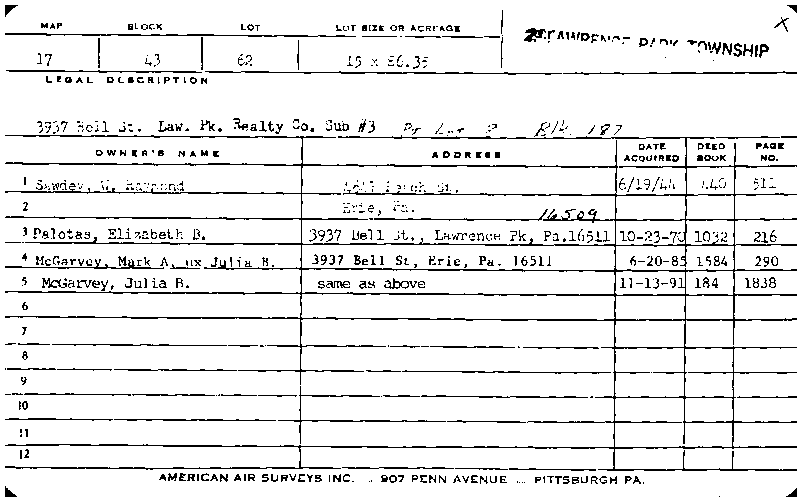 MAP BLOCK LOT LOT SIZE OR ACREAGE LAWRENCE PARK TOWNSHIP X
17 43 62 15 x 86.35
LEGAL DESCRIPTION
3937 Bell St. Law. Pk. Realty Co. Sub #3 Pt Lot 8 Blk. 187
OWNER'S NAME ADDRESS DATE ACQUIRED DEED BOOK PAGE NO.
1 Sawdey, W. Raymond St. 6/19/44 440 511
2 Erie, Pa. 16509
3 Palotas, Elizabeth B. 3937 Bell St., Lawrence Pk, Pa.16511 10-23-70 1032 216
4 McGarvey, Mark A. ux Julia B. 3937 Bell St, Erie, Pa. 16511 6-20-85 1584 290
5 McGarvey, Julia B. same as above 11-13-91 184 1838
6
7
8
9
10
11
12
AMERICAN AIR SURVEYS INC. .. 907 PENN AVENUE ... PITTSBURGH PA.